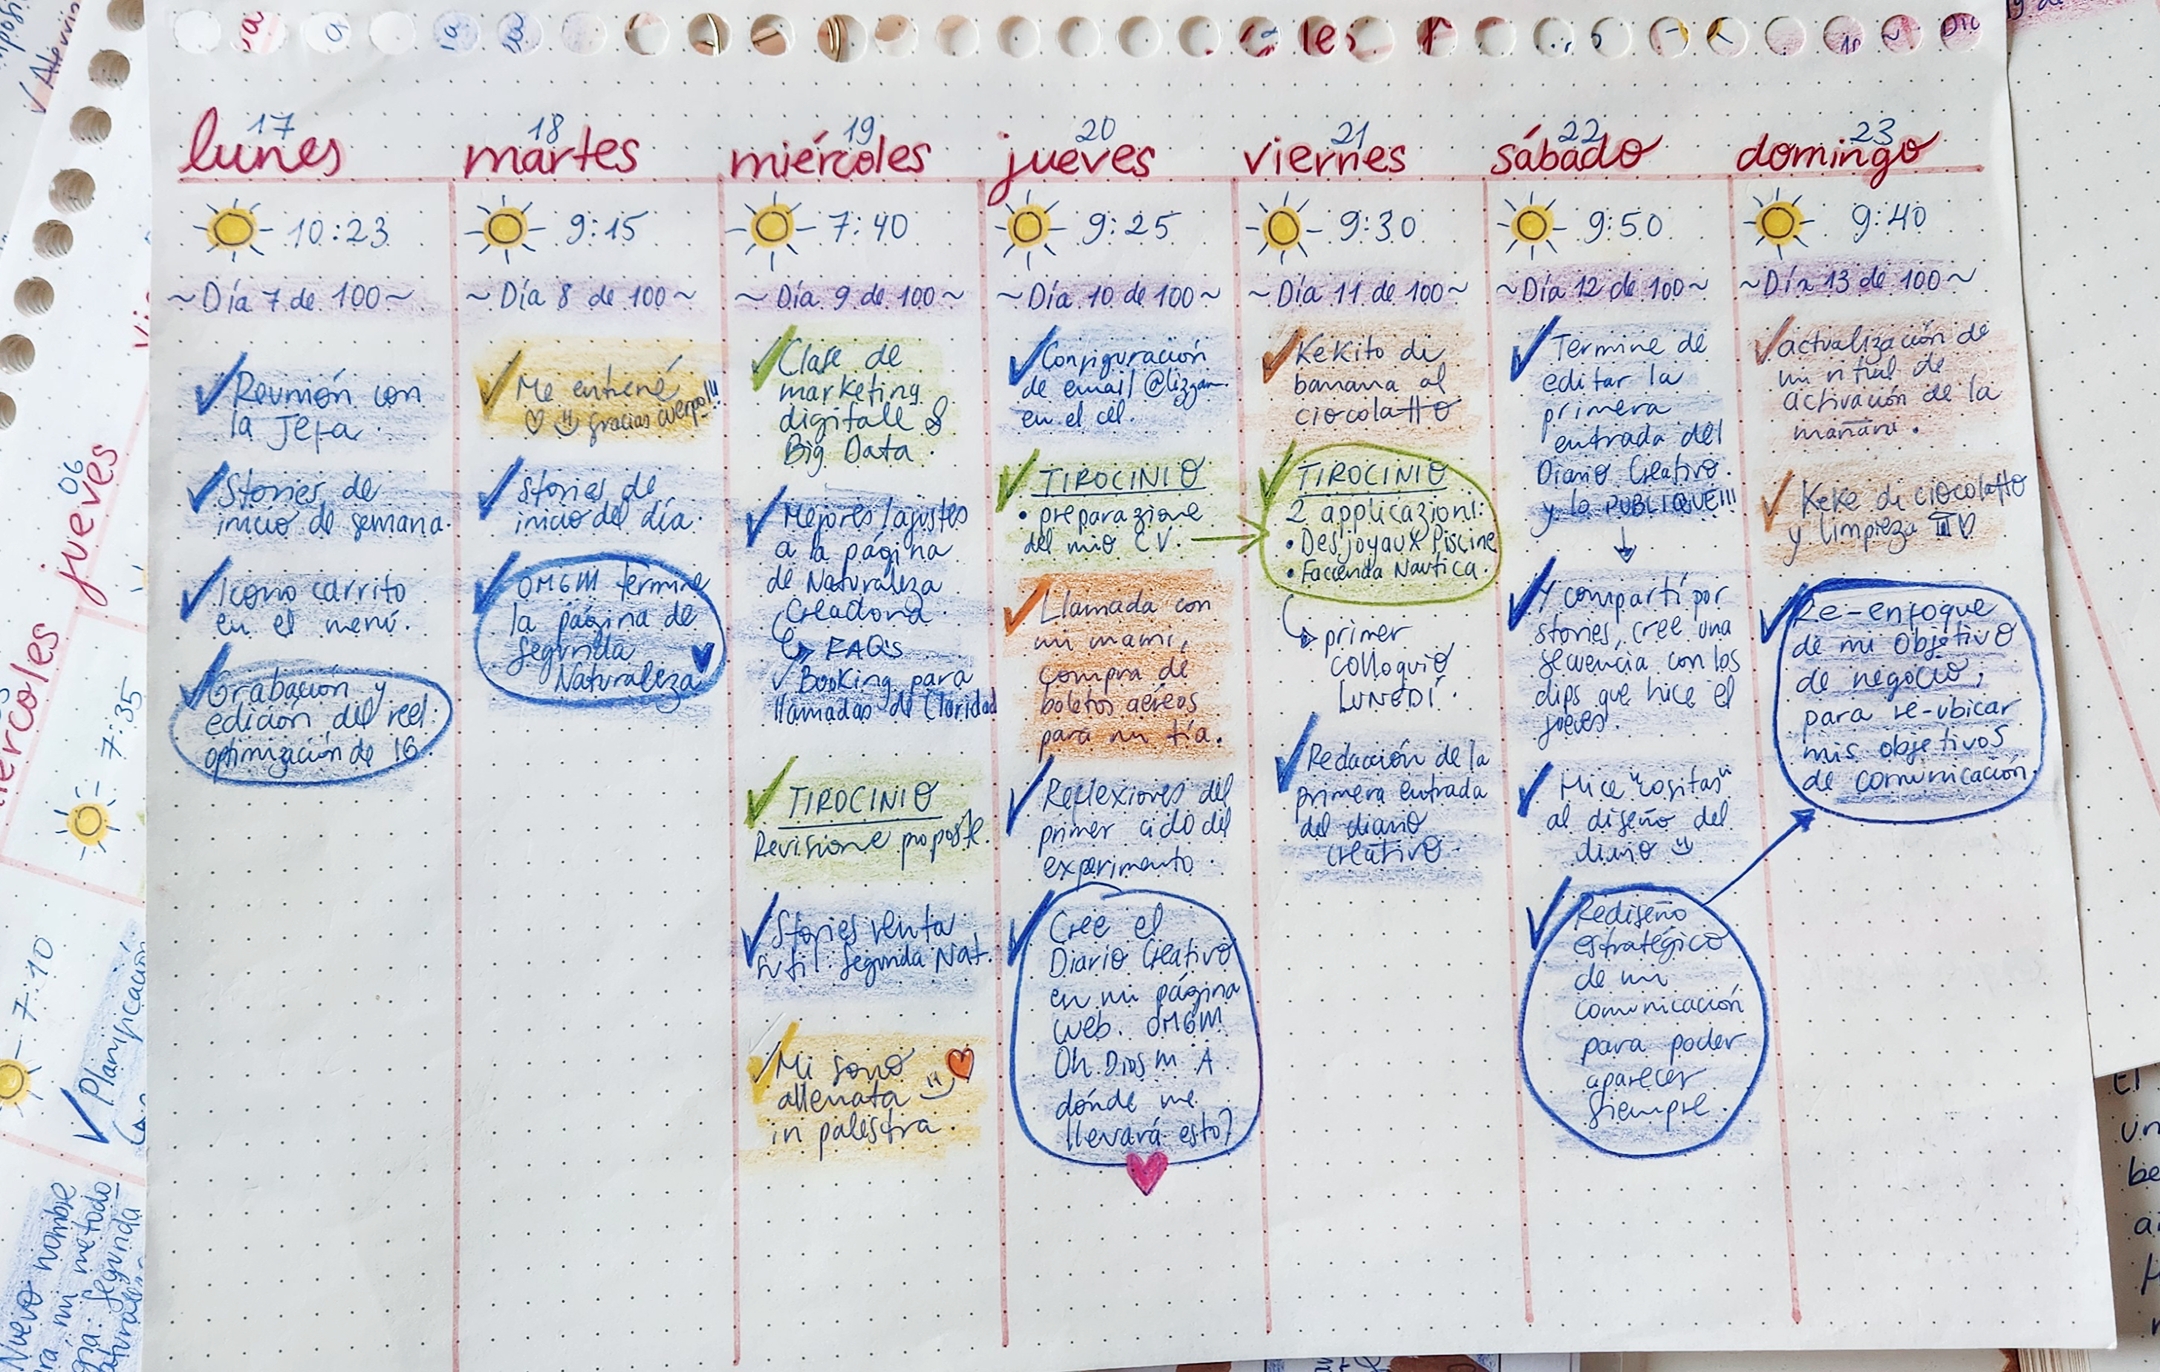 17
lunes
10:23
~Día 7 de 100~
Reunión con
la Jefa.
Stories de
inicio de semana.
Icono carrito
en el menú.
Grabación y
edición del reel:
optimización de IG.
18
martes
9:15
~Día 8 de 100~
Me entrené
gracias cuerpo!!!
Stories de
inicio del día.
OMGM terminé
la página de
Segunda
Naturaleza
19
miércoles
7:40
~Día 9 de 100~
Clase de
marketing
digitale &
Big Data.
Mejores/ajustes
a la página
de Naturaleza
Creadora
FAQs
Booking para
llamadas de Claridad
TIROCINIO
Revisione proposte.
Stories venta
sutil: Segunda Nat.
Mi sono
allenata
in palestra.
20
jueves
9:25
~Día 10 de 100~
Configuración
de email @lizgam.
en el cel.
TIROCINIO
• preparazione
del mio CV.
Llamada con
mi mami,
compra de
boletos aéreos
para mi tía.
Reflexiones del
primer ciclo del
experimento.
Creé el
Diario Creativo
en mi página
web. OMGM
Oh Dios m A
dónde me
llevará esto?
21
viernes
9:30
~Día 11 de 100~
Kekito di
banana al
ciocolatto
TIROCINIO
2 applicazioni:
• Desjoyaux Piscine
• Facenda Nautica.
primer
colloquio
LUNEDÍ.
Redacción de la
primera entrada
del diario
creativo.
22
sábado
9:50
~Día 12 de 100~
Terminé de
editar la
primera
entrada del
Diario Creativo.
y lo PUBLIQUÉ!!!
Y compartí por
stories, creé una
secuencia con los
clips que hice el
jueves.
Hice "cositas"
al diseño del
diario
Rediseño
estratégico
de mi
comunicación
para poder
aparecer
siempre.
23
domingo
9:40
~Día 13 de 100~
actualización de
mi ritual de
activación de la
mañana.
Keke di ciocolatto
y limpieza
Re-enfoque
de mi objetivo
de negocio,
para re-ubicar
mis objetivos
de comunicación.
06
jueves
7:35
7:10
Planificación
Nuevo nombre
mi método
Segunda